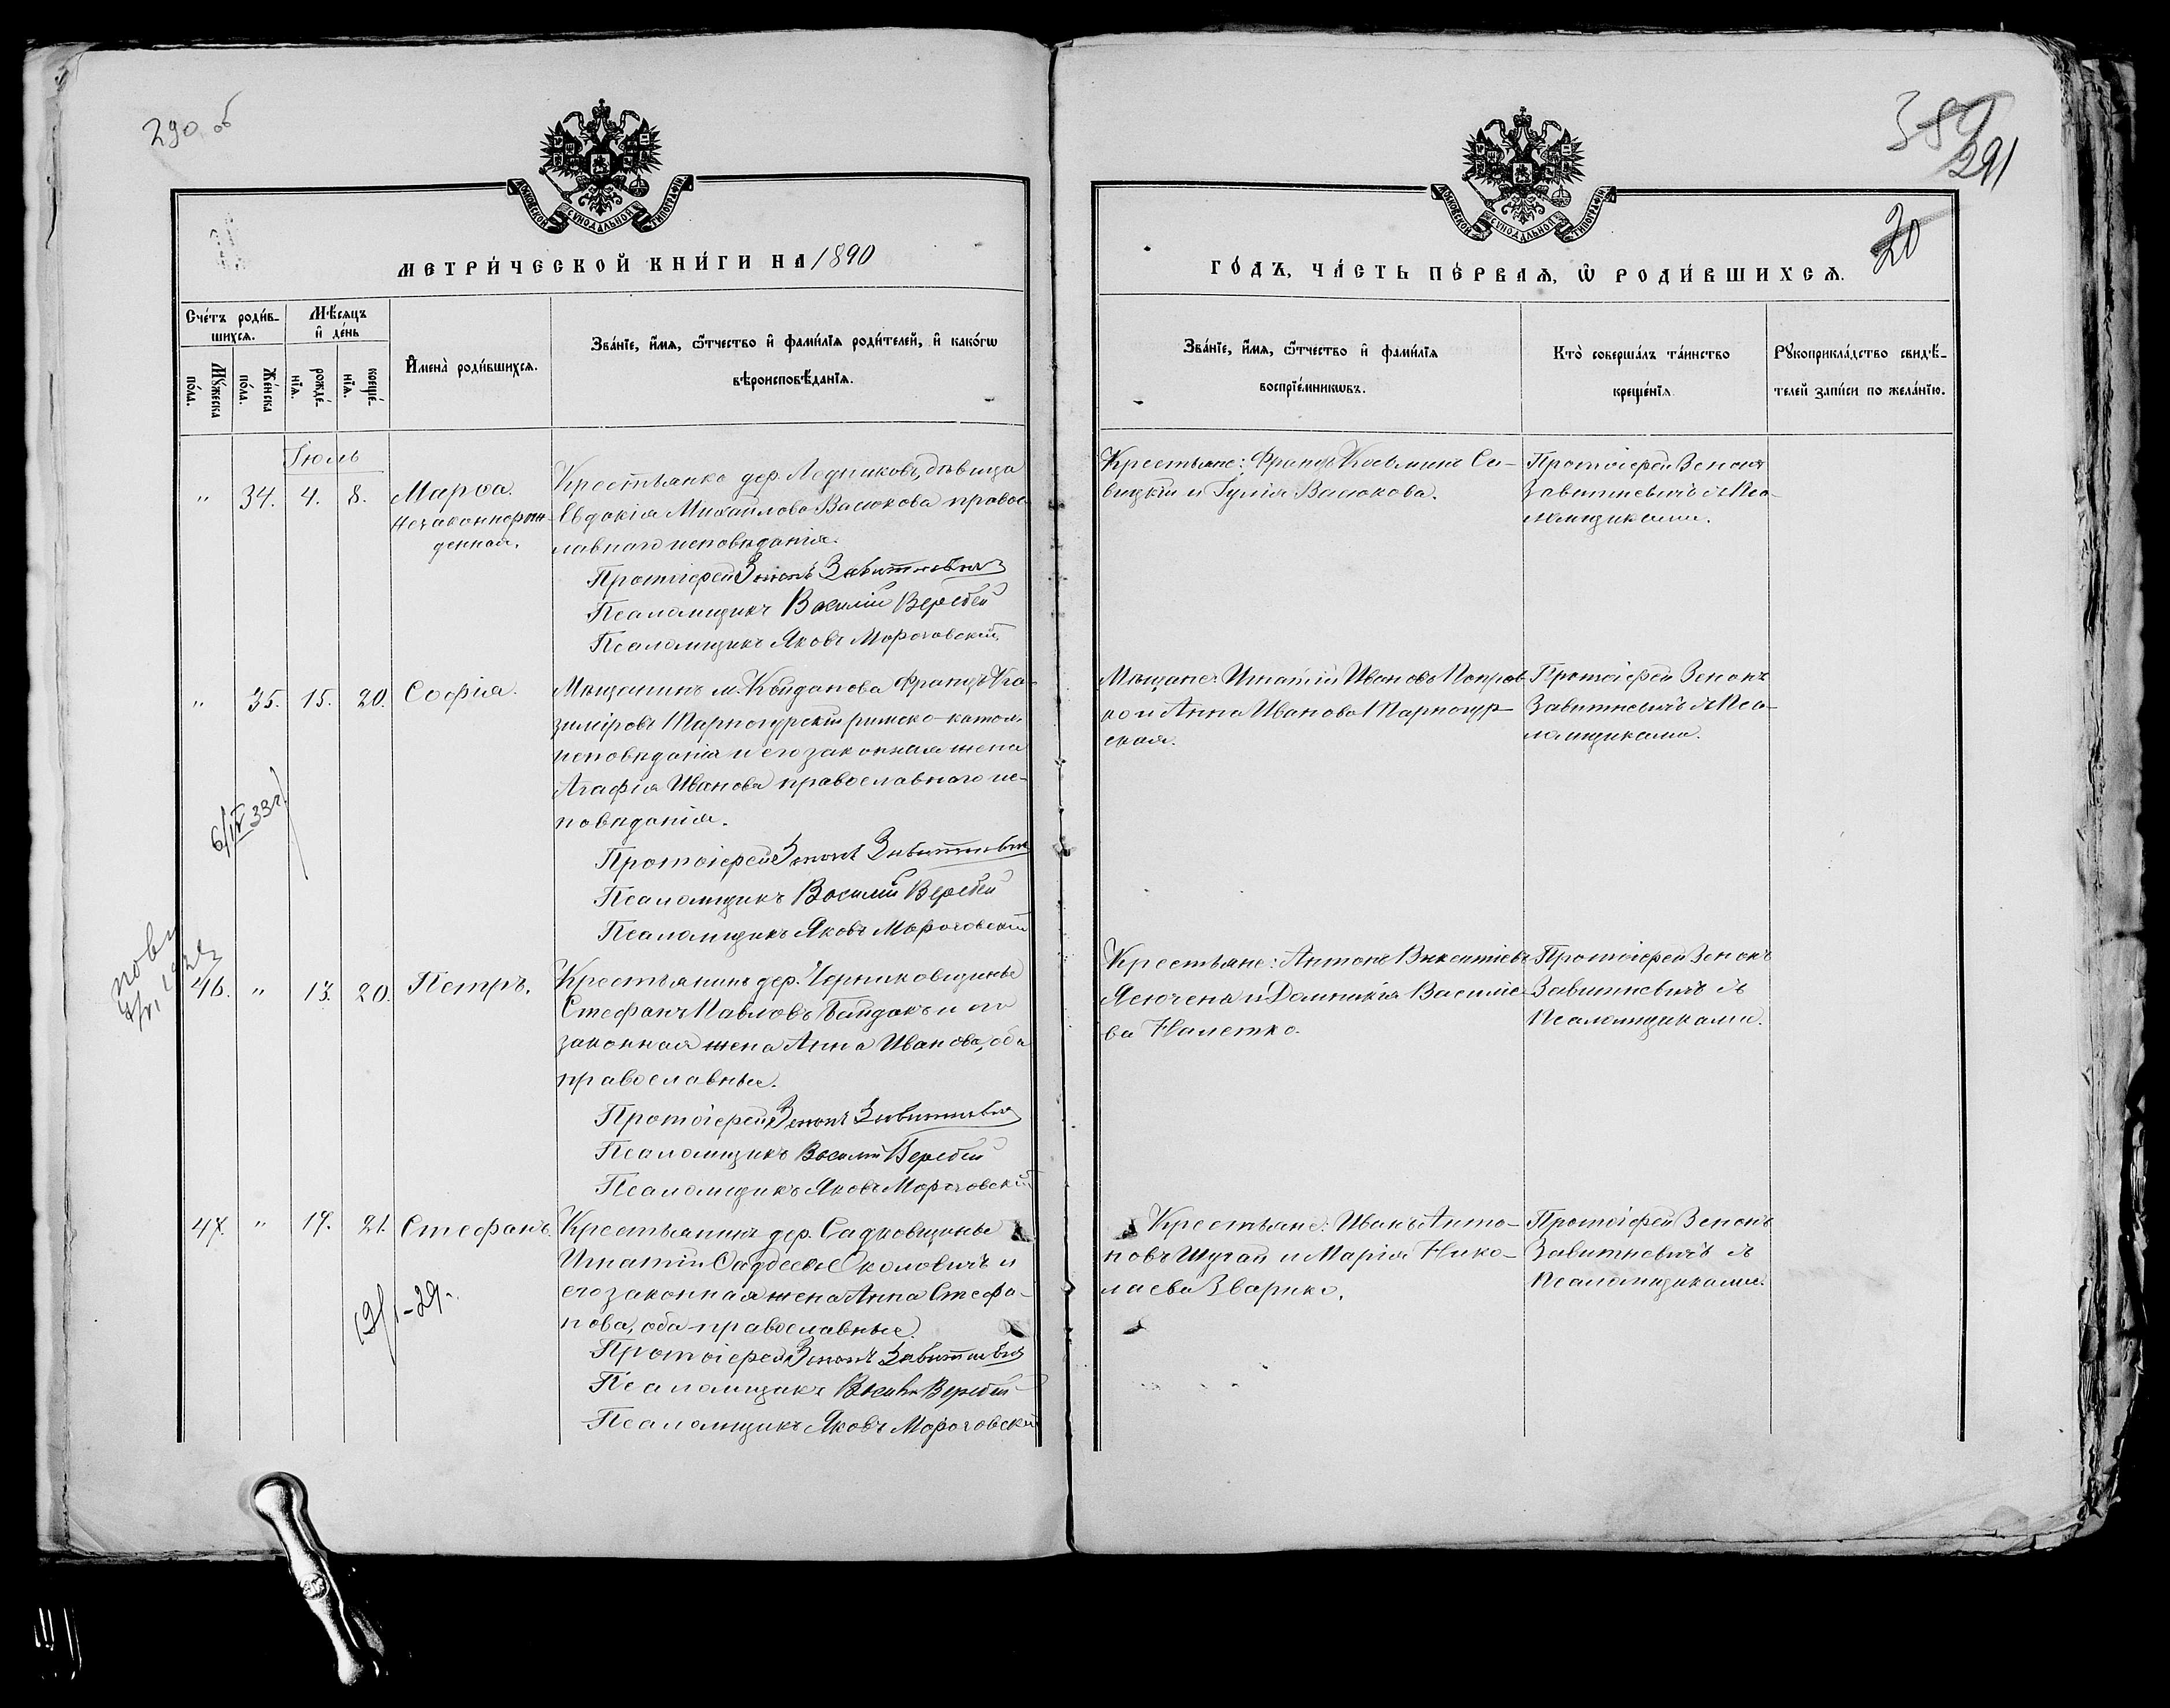 290 об
МОСКОВСКОЙ СѴНОДАЛЬНОЙ ТИПОГРАФІИ
МЕТРИ́ЧЕСКОЙ КНИ́ГИ НА 1890
Сче́тъ роди́в-
шихсѧ.
Мѣ́сѧцъ
и҆ де́нь
Мꙋ́жеска
по́ла.
Же́нска
по́ла.
рожде́-
нїѧ.
креще́-
нїѧ.
И҆мена̀ роди́вшихсѧ.
Зва́нїе, и҆́мѧ, ѻ҆́тчество и҆ фами́лїѧ роди́телей, и҆ како́гѡ
вѣроисповѣ́данїѧ.
Іюль
" 34. 4. 8.
Марѳа.
незаконнорож-
денная.
Крестьянка дер. Ледниковъ, дѣвица
Евдокія Михайлова Васюкова правос-
лавнаго исповѣданія.
Протоіерей Зенонъ Завитневичъ
Псаломщикъ Василій Веребей
Псаломщикъ Яковъ Морочовскій
" 35. 15. 20. Софія.
Мѣщанинъ м. Койданова Францъ Ка-
зиміровъ Тарногурскій римско-катол.
исповѣданія и его законная жена
Агафія Иванова православнаго ис-
повѣданія.
6/IV 33 г.
Протоіерей Зенонъ Завитневичъ
Псаломщикъ Василій Веребей
Псаломщикъ Яковъ Морочовскій
46. " 13. 20. Петръ.
Крестьянинъ дер. Черниковщины
Стефанъ Павловъ Байдакъ и его
законная жена Анна Иванова, оба
православные.
Протоіерей Зенонъ Завитневичъ
Псаломщикъ Василій Веребей
Псаломщикъ Яковъ Морочовскій
47. " 19. 21. Стефанъ.
Крестьянинъ дер. Садковщины
Игнатій Фаддеевъ Соколовичъ и
его законная жена Анна Стефа-
нова, оба православные.
Протоіерей Зенонъ Завитневичъ
Псаломщикъ Василій Веребей
Псаломщикъ Яковъ Морочовскій
389
291
20
МОСКОВСКОЙ СѴНОДАЛЬНОЙ ТИПОГРАФІИ
ГО́ДЪ, ЧА́СТЬ ПЕ́РВАѦ, Ѡ҆ РОДИ́ВШИХСѦ.
Зва́нїе, и҆́мѧ, ѻ҆́тчество и҆ фами́лїѧ
воспрїе́мникѡвъ.
Кто̀ соверша́лъ та́инство
креще́нїѧ
Рꙋкоприкла́дство свидѣ́-
телей за́писи по жела́нїю.
Крестьяне: Францъ Косьминъ Са-
вицкій и Іулія Васюкова.
Протоіерей Зенонъ
Завитневичъ съ Пса-
ломщиками.
Мѣщане: Игнатій Ивановъ Попров-
ко и Анна Иванова Тарногур-
ская.
Протоіерей Зенонъ
Завитневичъ съ Пса-
ломщиками.
Крестьяне: Антонъ Викентіевъ
Ясюченя и Домникія Василіе-
ва Налетко.
Протоіерей Зенонъ
Завитневичъ съ
Псаломщиками.
Крестьяне: Иванъ Анто-
новъ Шугай и Марія Нико-
лаева Зварико.
Протоіерей Зенонъ
Завитневичъ съ
Псаломщиками.